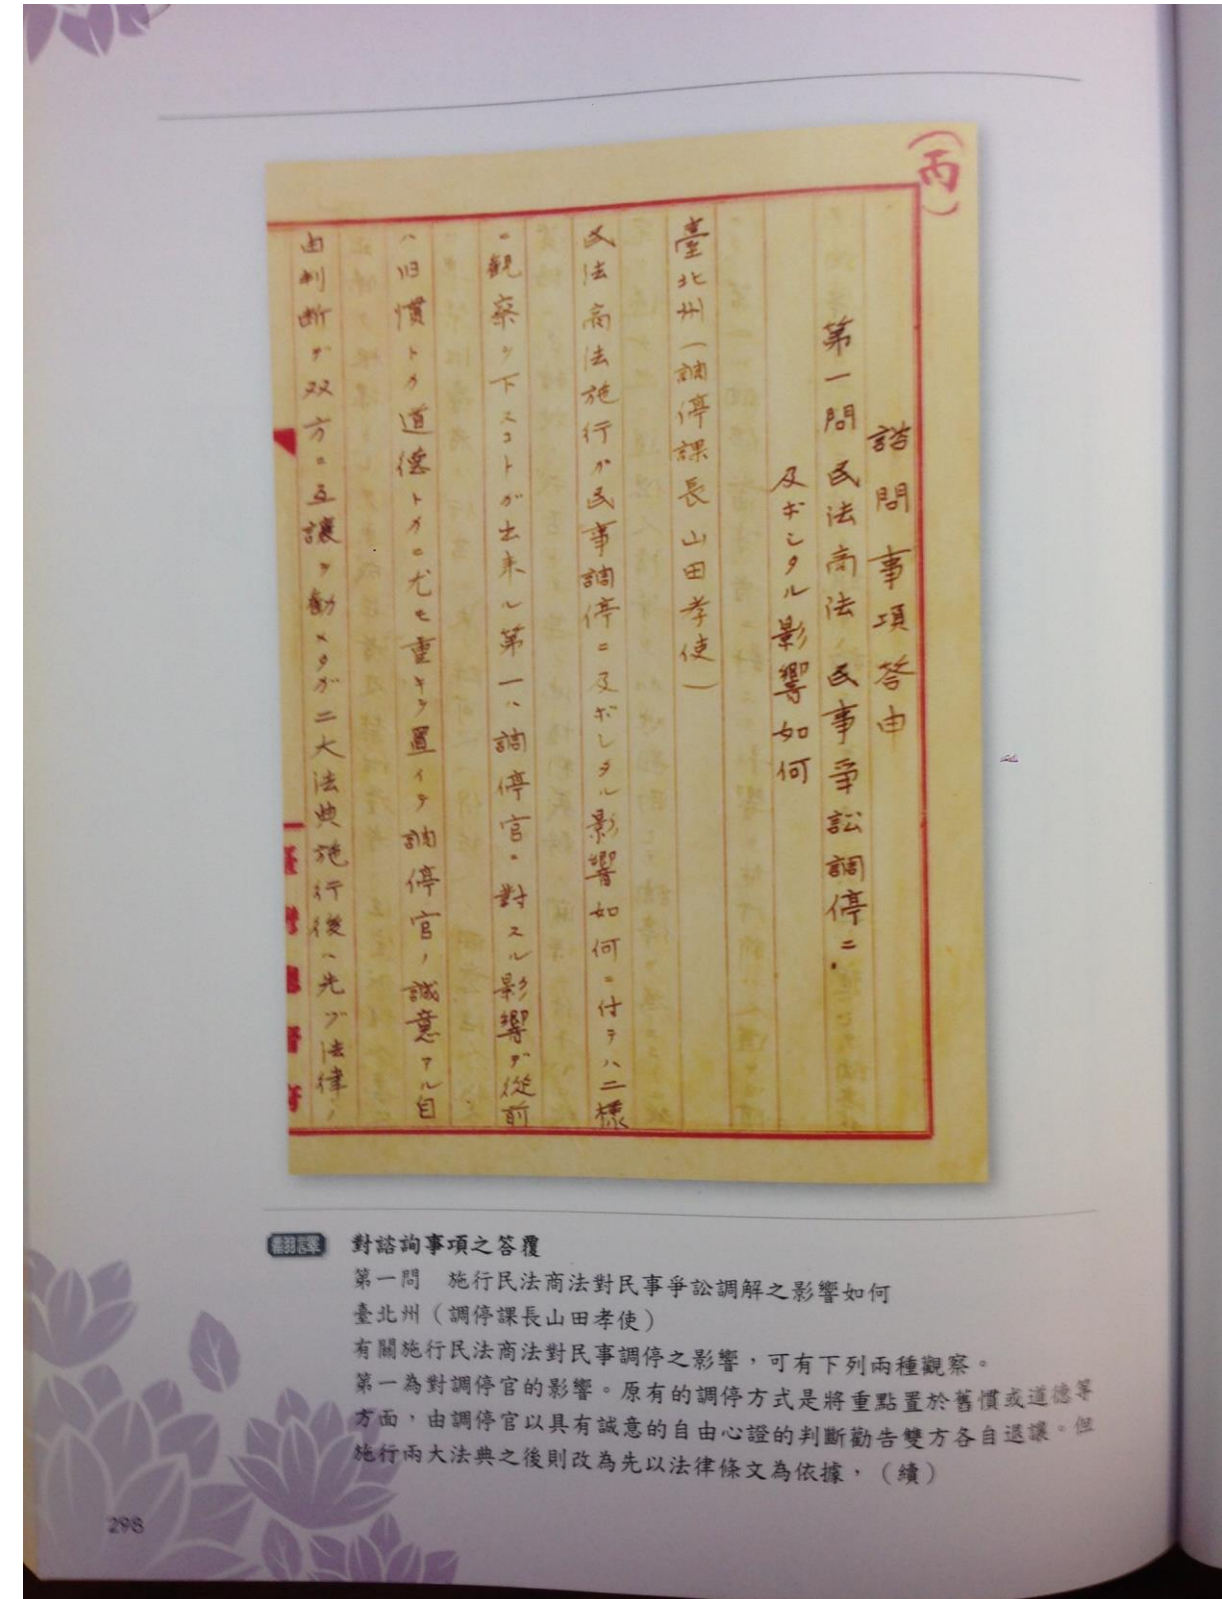 (丙)
諮問事項答申
第一問 民法商法ノ民事爭訟調停ニ
及ボシタル影響如何
臺北州(調停課長 山田孝使)
民法商法施行ガ民事調停ニ及ボシタル影響如何ニ付テハ二樣
ニ観察ヲ下スコトガ出来ル第一ハ調停官ニ對スル影響デ從前
ハ旧慣トカ道德トカニ尤モ重キヲ置イテ調停官ノ誠意アル自
由判断デ双方ニ互讓ヲ勧メタガ二大法典施行後ハ先ヅ法律ノ
臺灣總督府
翻譯 對諮詢事項之答覆
第一問 施行民法商法對民事爭訟調解之影響如何
臺北州(調停課長山田孝使)
有關施行民法商法對民事調停之影響,可有下列兩種觀察。
第一為對調停官的影響。原有的調停方式是將重點置於舊慣或道德等
方面,由調停官以具有誠意的自由心證的判斷勸告雙方各自退讓。但
施行兩大法典之後則改為先以法律條文為依據,(續)
298